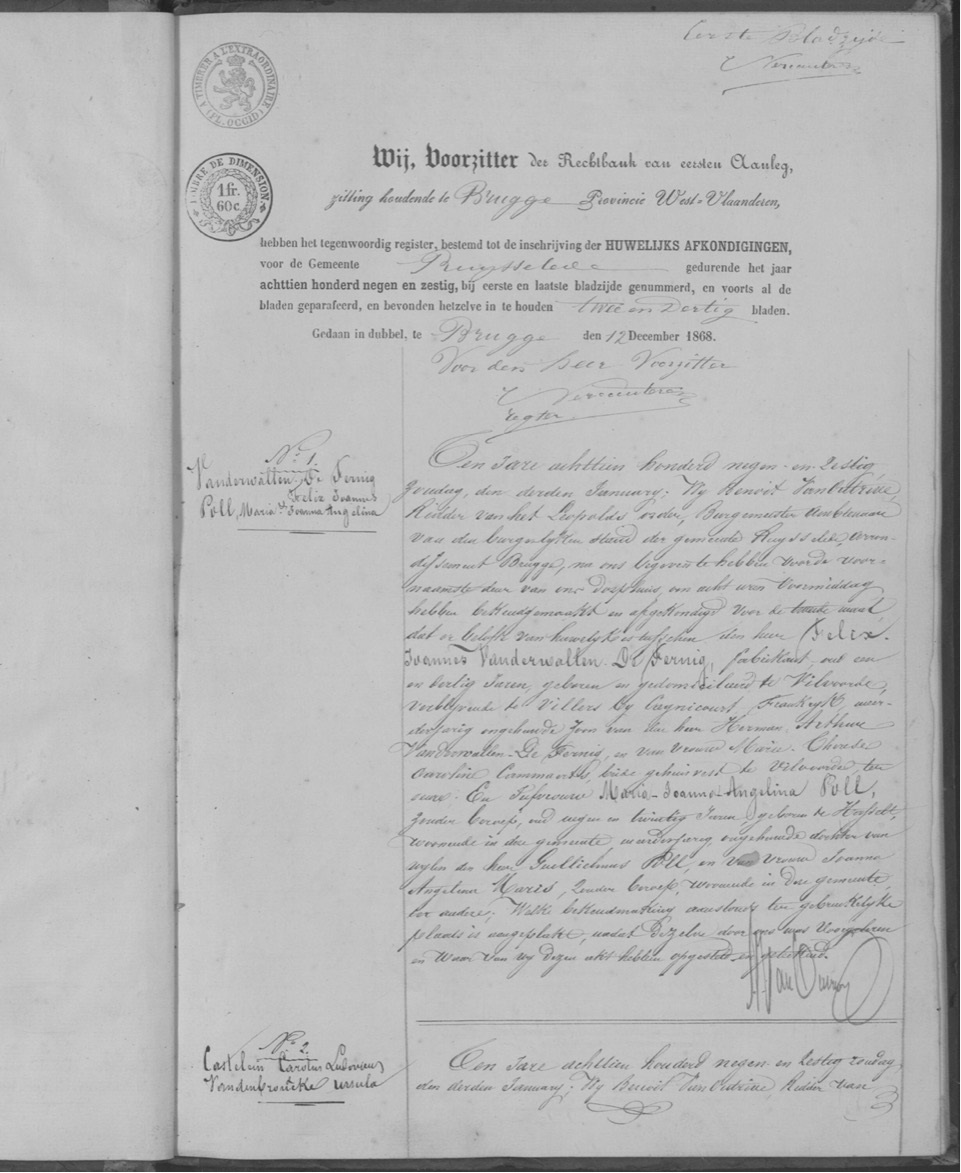 Eerste Bladzijde
A TIMBRER A L'EXTRAORDINAIRE
(FL. OCCID)
TIMBRE DE DIMENSION
1 fr.
60 c.
Wij, Voorzitter der Rechtbank van eersten Aanleg,
zitting houdende te Brugge Provincie West-Vlaanderen,
hebben het tegenwoordig register, bestemd tot de inschrijving der HUWELIJKS AFKONDIGINGEN,
voor de Gemeente Ruysselede gedurende het jaar
achttien honderd negen en zestig, bij eerste en laatste bladzijde genummerd, en voorts al de
bladen geparafeerd, en bevonden hetzelve in te houden twee en dertig bladen.
Gedaan in dubbel, te Brugge den 12 December 1868.
Voor den heer Voorzitter
N.r 1.
Vanderwallen-De Fernig
Felix Joannes
Poll, Maria Joanna Angelina
Ten Jare achttien honderd negen-en-zestig,
Zondag, den derden January; Wy Benoit
Ridder van het Leopolds order, Burgemeester
van den burgerlyken stand der gemeente Ruysselede, arron-
dissement Brugge, na ons begeven te hebben voor de voor-
naamste deur van ons dorphuis, om acht uren voormiddag
hebben bekendgemaakt en afgekondigd voor de tweede maal
dat er belofte van huwelyk is tusschen den heer Felix
Joannes Vanderwallen-De Fernig, fabrikant, oud een
en dertig Jaren, geboren en gedomicilieerd te Vilvoorde,
verblyvende te Villers by Frankryk, meer-
derjarig ongehuwde zoon van den heer Herman Arthur
Vanderwallen-De Fernig, en van vrouw Marie-Therese
Caroline beide gehuisvest te Vilvoorde ter
eenre. En Jufvrouw Maria-Joanna-Angelina Poll,
zonder beroep, oud negen en twintig Jaren, geboren te Hasselt,
woonende in deze gemeente meerderjarig ongehuwde dochter van
wylen den heer Guillielmus Poll, en van vrouw Joanna
Angelina Maris, zonder beroep, woonende in deze gemeente,
ter andere; Welke bekendmaking aanstonds ter gebruikelyke
plaats is aangeplakt, nadat dezelve door ons was voorgelezen
en waar van wy dezen akt hebben opgesteld en geteekend.
N.r 2.
Castelein Carolus Ludovicus
Vandenbroucke Ursula
Ten Jare achttien honderd negen-en zestig zondag
den derden January; Wy Benoit Ridder van